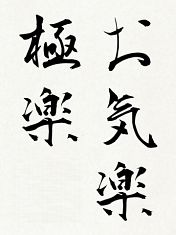 お気楽
極楽